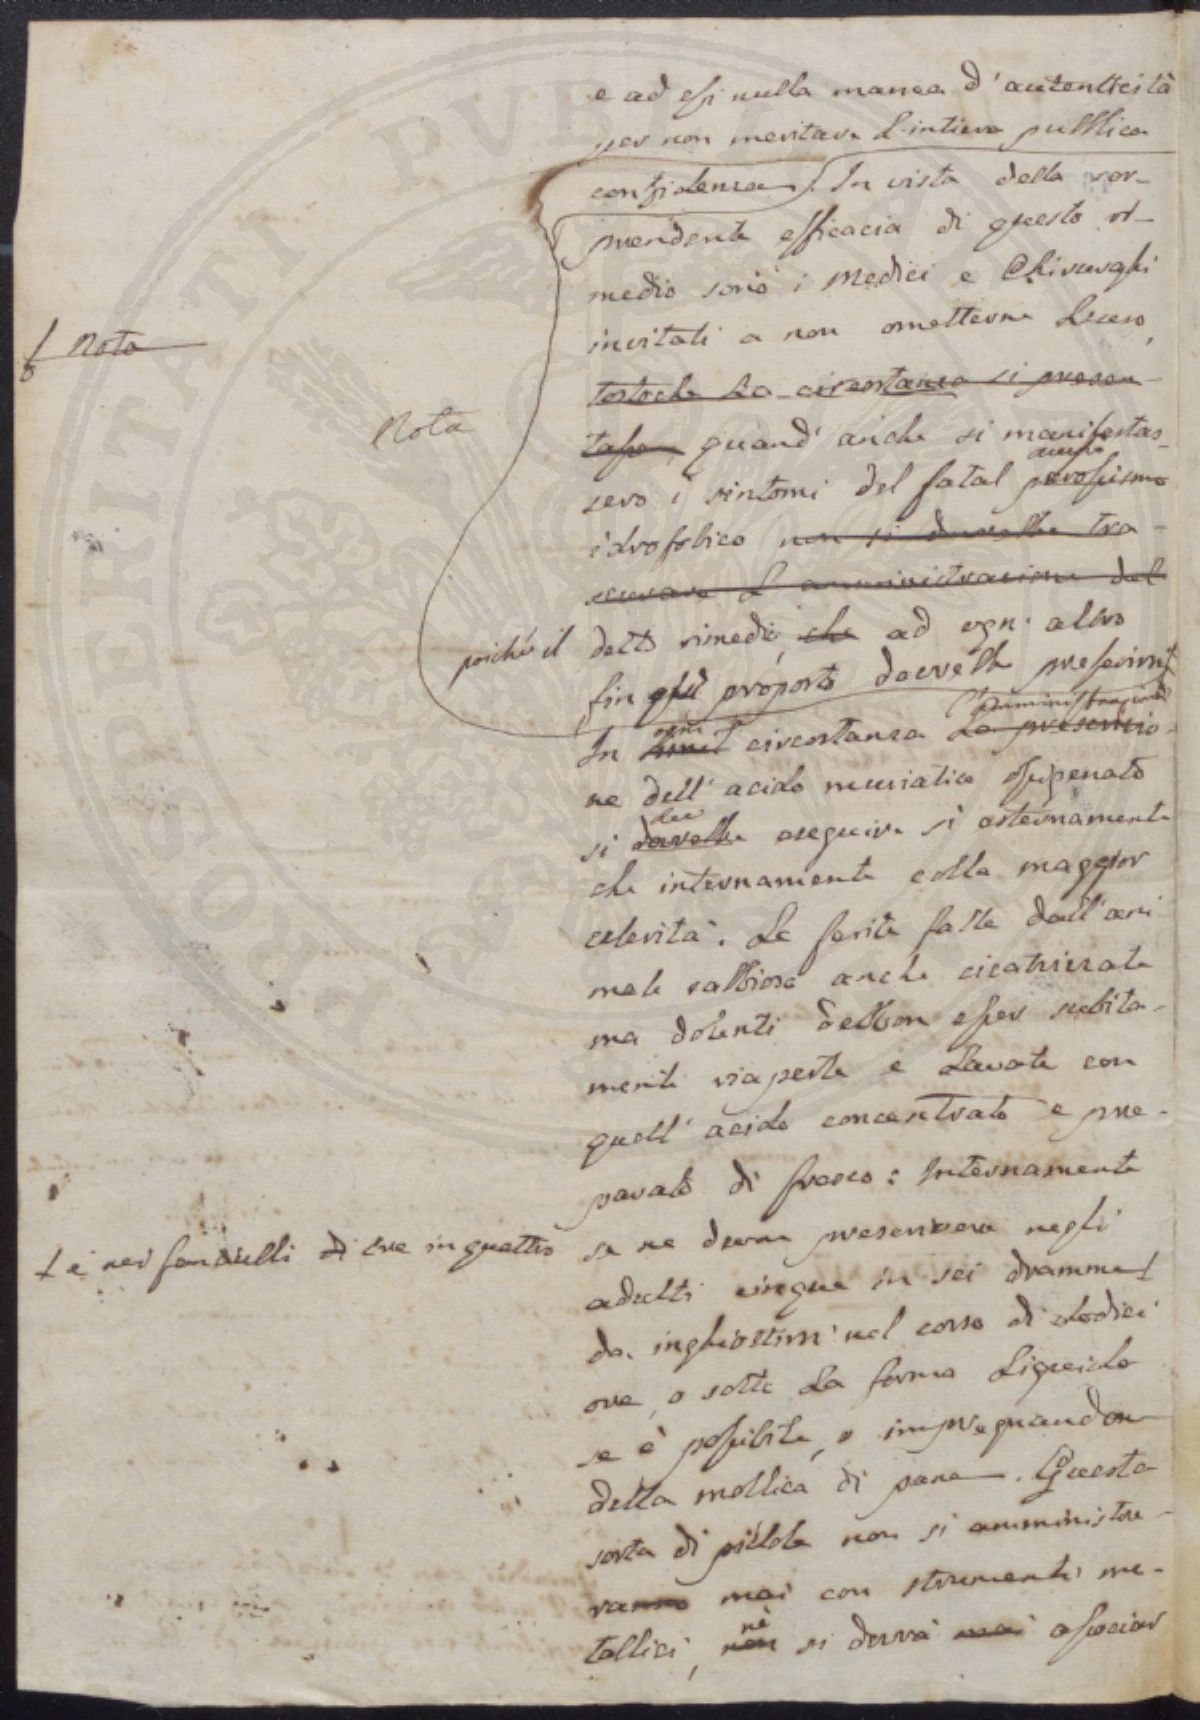 e ad essi nulla manca d'autenticità
per non meritare l'intiera pubblica
confidenza. In vista della sor-
prendente efficacia di questo ri-
medio sono i Medici e Chirurghi
invitati a non ometterne l'uso,
tostochè la circostanza si presen-
tasse, quand'anche si manifestas-
sero i sintomi del fatal parosismo
idrofobico non si dovrebbe tra-
scurare l'amministrazione del
poichè il detto rimedio, che ad ogni altro
fin quì proposto dovrebbe preferirsi
Nota
Nota
ogni amministrazione
In simil circostanza la prescrizio-
ne dell'acido muriatico ossigenato
dee
si dovrebbe eseguire sì esternamente
che internamente colla maggior
celerità. Le ferite fatte dall'ani
male rabbioso anche cicatrizzate
ma dolenti debbon esser subita-
mente riaperte e lavate con
quell'acido concentrato e pre-
parato di fresco: Internamente
se ne deve prescrivere negli
adulti cinque in sei dramme
e nei fanciulli di tre in quattro
da inghiottirsi nel corso di dodici
ore, o sotto la forma liquida
se è possibile, o impregnandone
della mollica di pane. Questa
sorta di pillole non si amministre-
ranno mai con strumenti me-
nè
tallici, non si dovrà mai associar